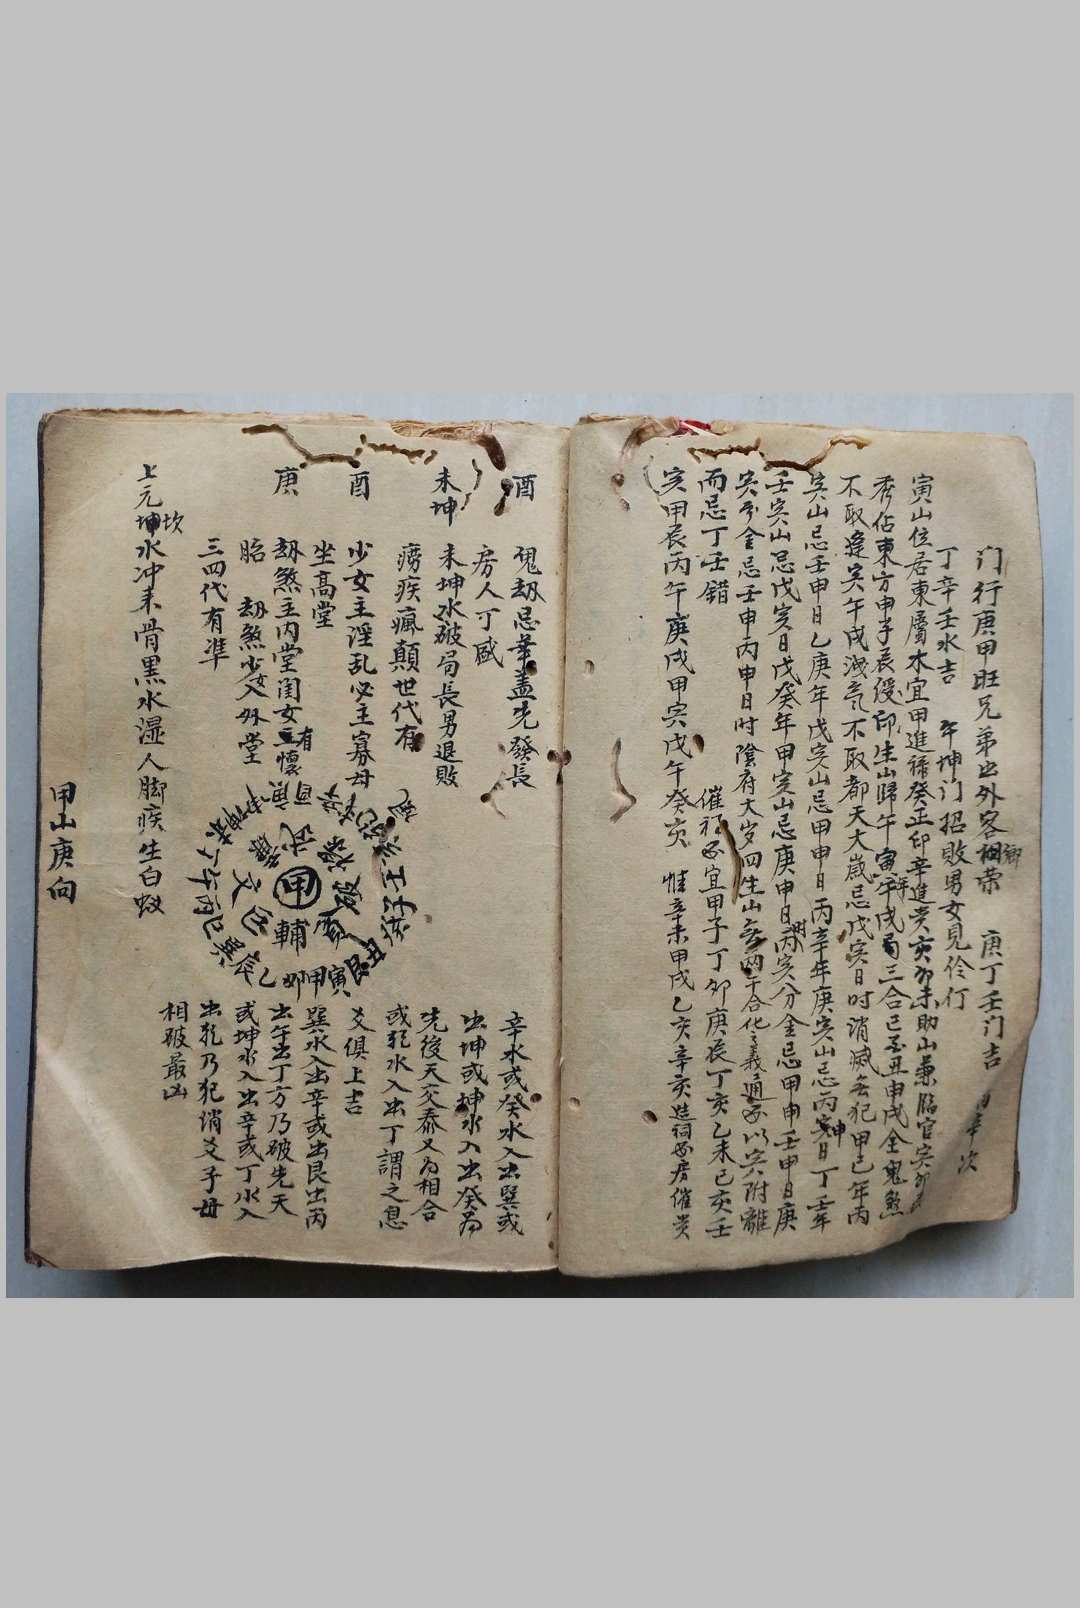 门行庚甲旺兄弟出外客相荣 庚丁壬门吉
丁辛壬水吉 午坤门招敗男女見伶仃
寅山位居東屬木宜甲進祿癸正印辛進贵亥卯未助山兼臨官寅卯
秀佔東方申子辰綬印生山歸午寅午戌局三合己至丑申戌全鬼煞
不取逢寅午戌洩氣不取都天大嵗忌戊寅日时消滅無犯甲己年丙
寅山忌壬申日乙庚年戊寅山忌甲申日丙辛年庚寅山忌丙申日丁壬年
壬寅山忌戊寅日戊癸年甲寅山忌庚申日时丙寅分金忌甲申壬申日庚
寅分金忌壬申丙申日时陰府大岁四生山無两干合化之義通要以寅附離
而忌丁壬錯 催福要宜甲子丁卯庚辰丁亥乙未己亥壬
寅甲辰丙午庚戌甲寅戊午癸亥 惟辛未甲戌乙亥辛亥造祠要房催贵
酉 鬼刼忌華盖先發長
房人丁盛
未坤 未坤水破局長男退敗
癆疾瘋顛世代有
酉 少女主淫乱必主寡母
坐高堂
庚 刼煞主内堂闺女主有懷
胎 刼煞少女入外堂
三四代有準
上元坤坎水冲来骨黑水湿人脚疾生白蚁
辛水或癸水入出巽或
出坤或坤水入出癸为
先後天交泰又为相合
或乾水入出丁謂之息
爻俱上吉
巽水入出辛或出艮出丙
出午出丁方乃破先天
或坤水入出辛或丁水入
出乾乃犯消爻子母
相破最凶
甲
輔
武
破
文
寅甲卯乙辰巽巳丙午丁
甲山庚向